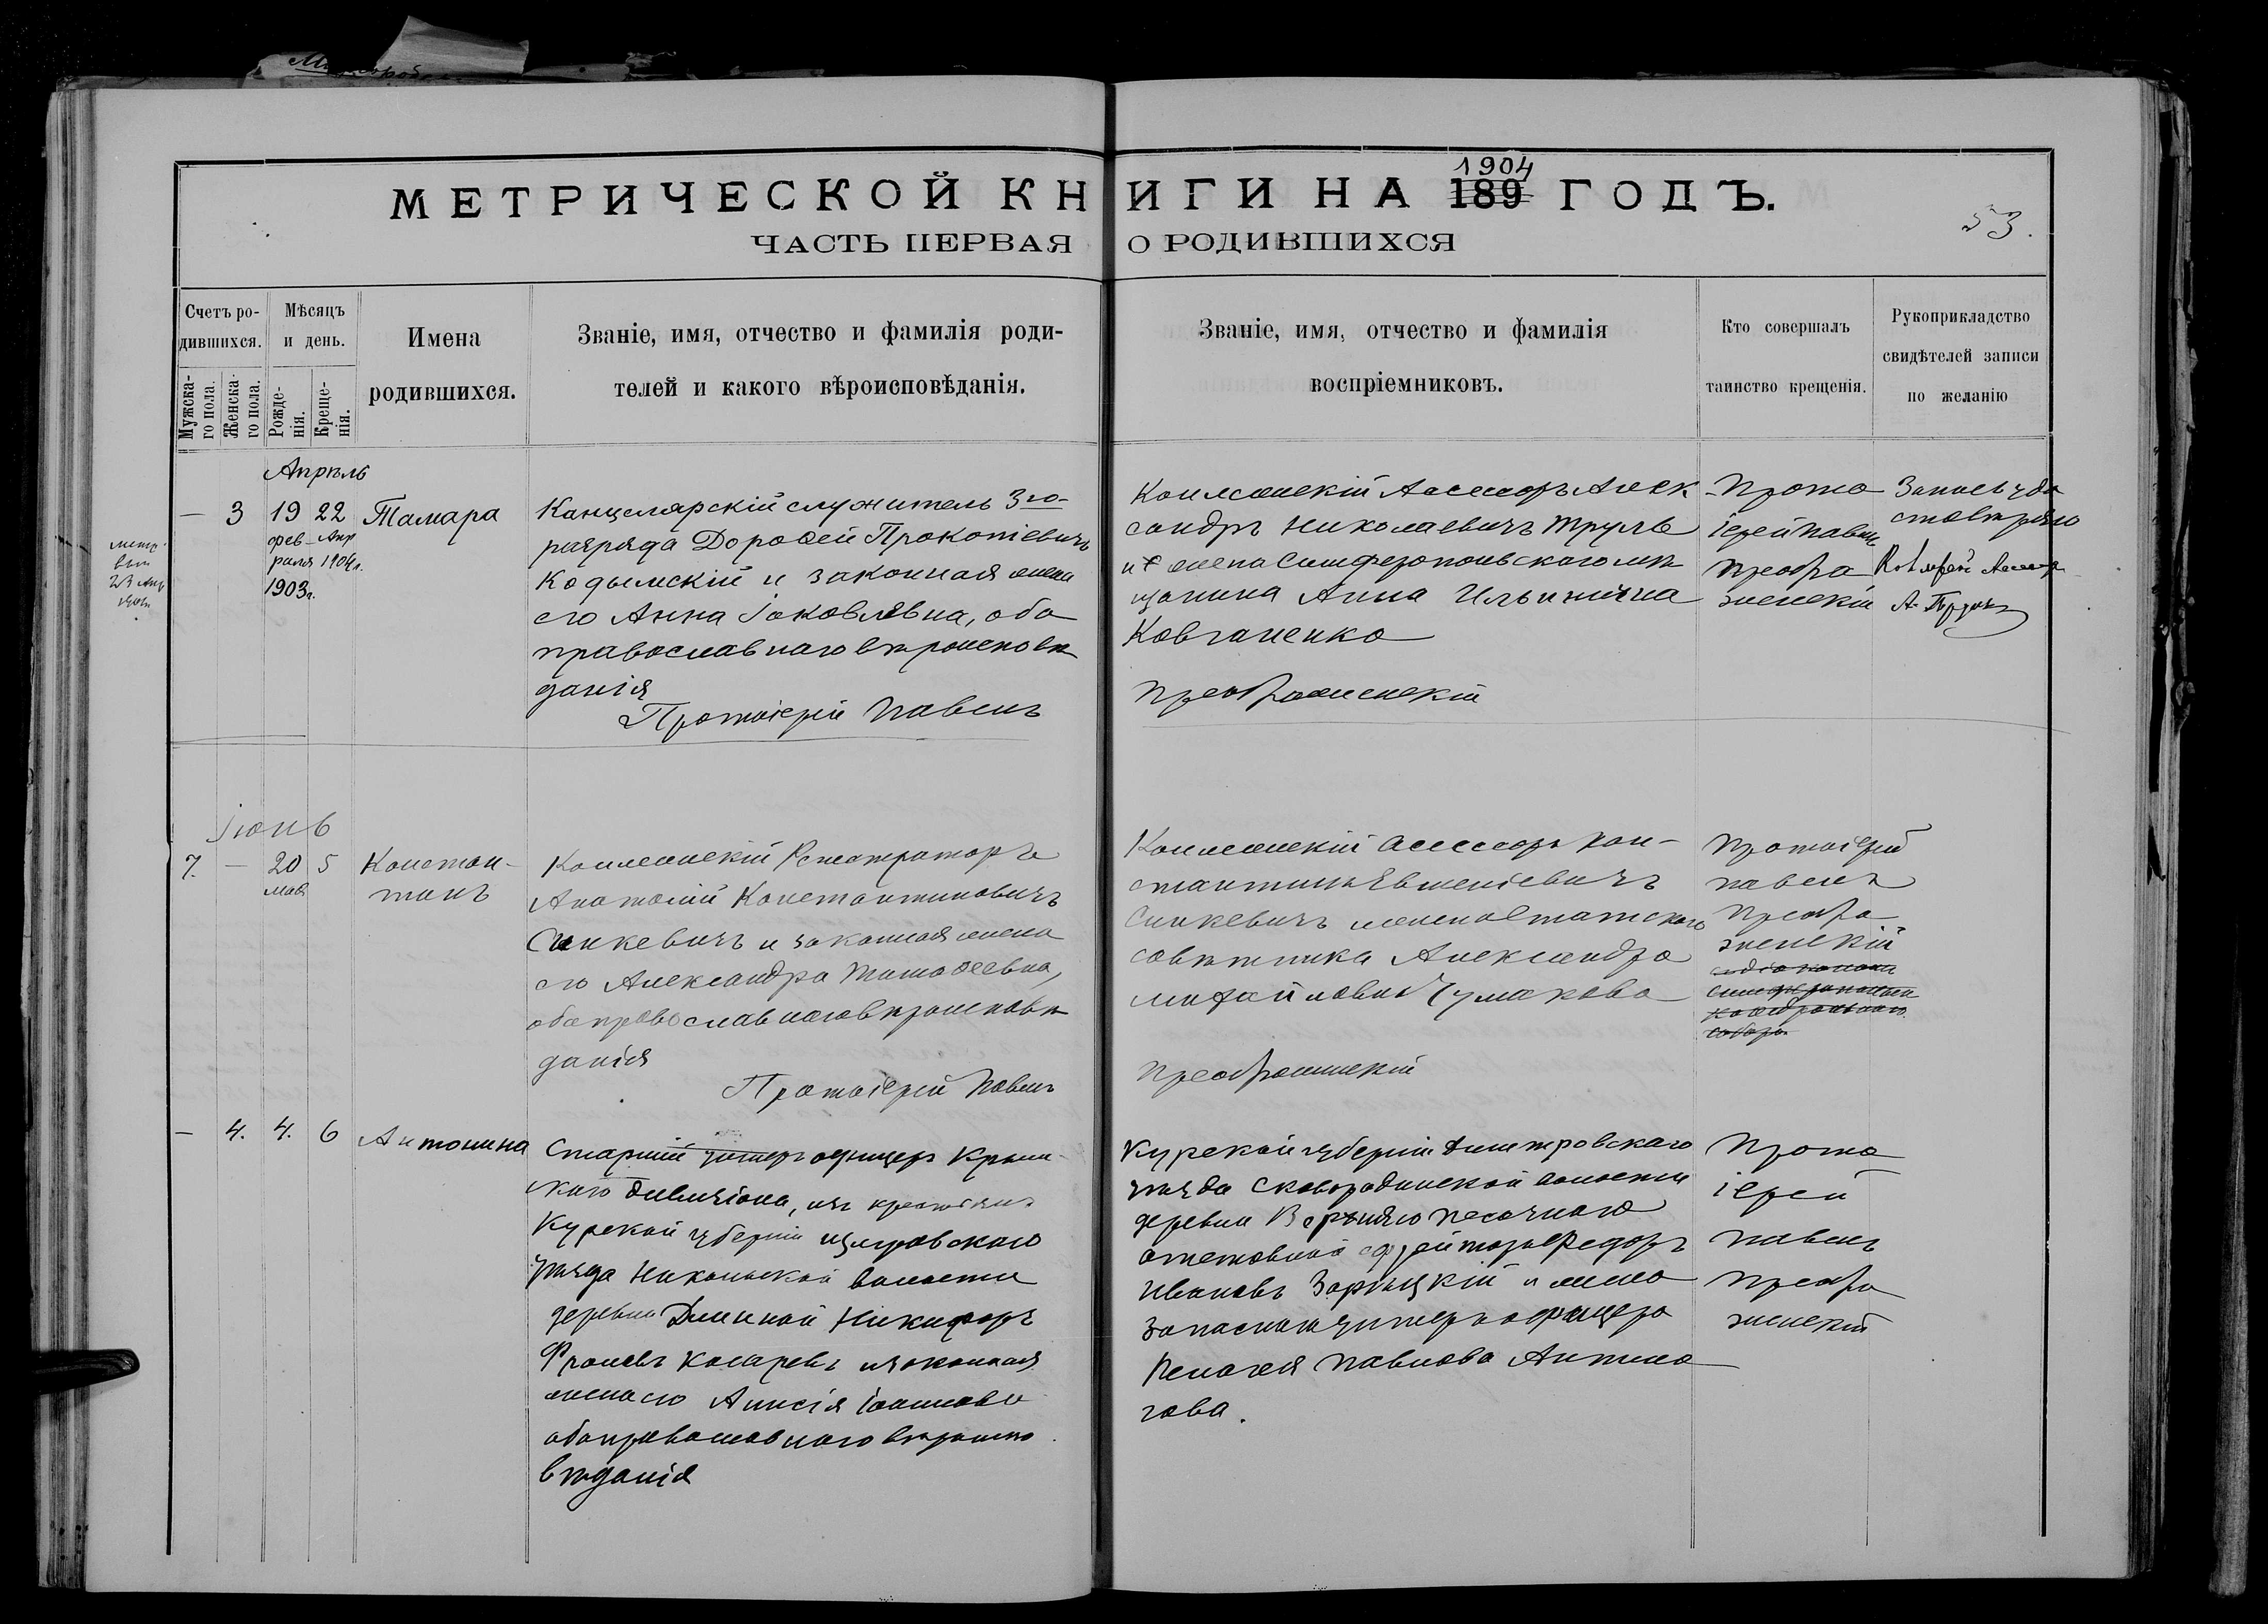 МЕТРИЧЕСКОЙ КНИГИ НА 1904 189 ГОДЪ.
53.
ЧАСТЬ ПЕРВАЯ О РОДИВШИХСЯ
Счетъ ро-
дившихся.
Мужска-
го пола.
Женска-
го пола.
Мѣсяцъ
и день.
Рожде-
нія.
Креще-
нія.
Имена
родившихся.
Званіе, имя, отчество и фамилія роди-
телей и какого вѣроисповѣданія.
Званіе, имя, отчество и фамилія
воспріемниковъ.
Кто совершалъ
таинство крещенія.
Рукоприкладство
свидѣтелей записи
по желанію
Апрѣль
— 3 19 22 Тамара
фев- Апр
раля 1904г.
1903г.
Канцелярскій служитель 3го-
разряда Дороѳей Прокопіевичъ
Кодымскій и законная жена
его Анна Іаковлевна, оба
православнаго вѣроисповѣ
данія
Протоіерей Павелъ
Коллежскій Ассесоръ Алек
сандръ Николаевичъ
и жена Симферопольскаго мѣ
щанина Анна Ильинична
Ковганенко
Преображенскій
Прото
іерей Павелъ
Преобра
женскій
Запись удо
стовѣряю
Іюнь
7. — 20 5 Констан-
мая
тинъ
Коллежскій Регистраторъ
Анатолій Константиновичъ
Синкевичъ и законная жена
его Александра Тимоѳеевна,
оба православнаго вѣроисповѣ
данія
Протоіерей Павелъ
Коллежскій Ассесоръ Кон-
стантинъ Евгеніевичъ
Синкевичъ жена Статскаго
совѣтника Александра
Михайловна Чумакова
Преображенскій
Протоіерей
Павелъ
Преобра
женскій
собора
— 4. 4. 6 Антонина
Старшій унтеръ офицеръ Крым
скаго дивизіона, изъ крестьянъ
Курской губерніи Щигровскаго
уѣзда Никольской волости
деревни Никифоръ
Косаревъ и законная
жена его Анисія Іоаннова
оба православнаго вѣроиспо
вѣданія
Курской губерніи Дмитровскаго
уѣзда Сковородинской волости
деревни
ефрейторъ Ѳедоръ
Ивановъ и жена
запаснаго унтеръ офицера
Пелагея Павлова Антипо
гова.
Прото
іерей
Павелъ
Преобра
женскій